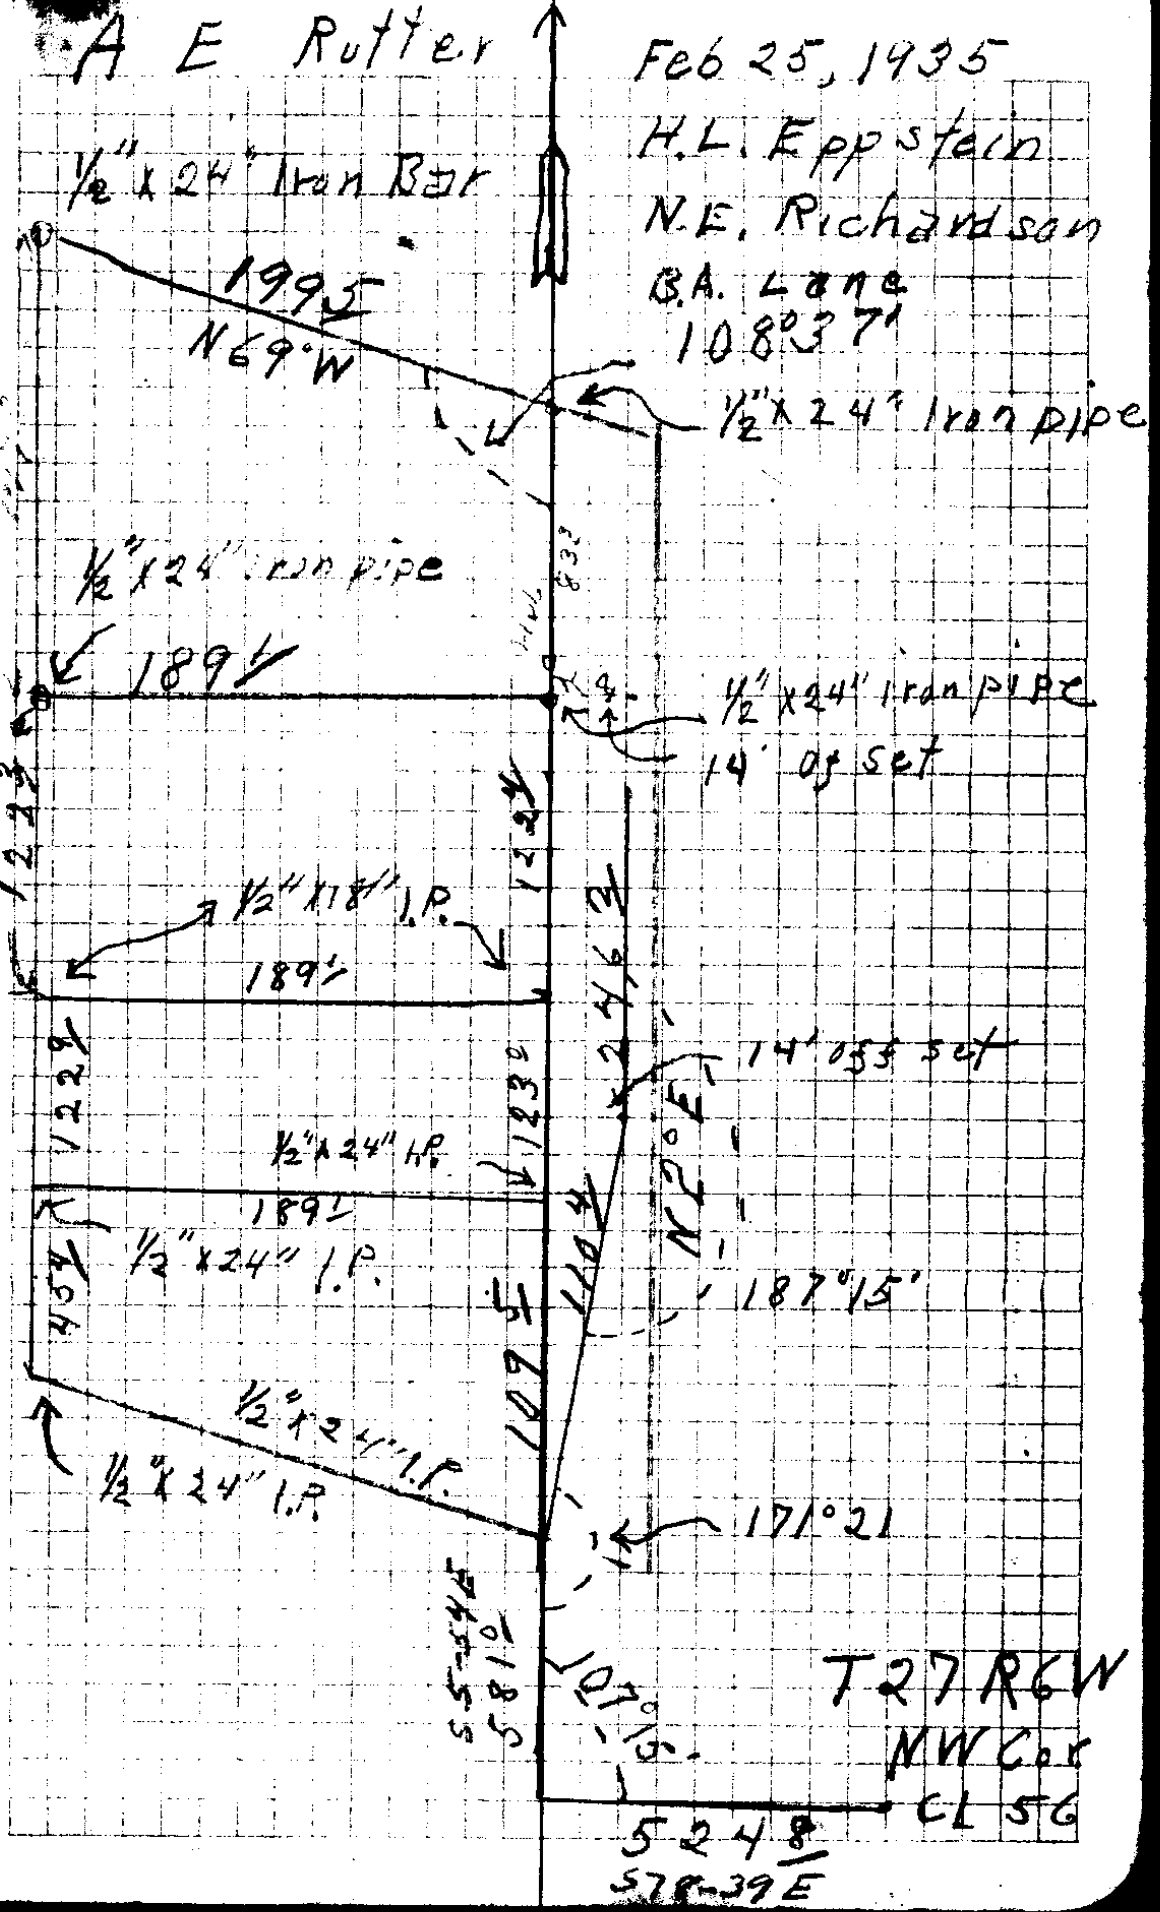 A E Rutter
Feb 25, 1935
H.L. Eppstein
N.E. Richardson
B.A. Lane
1/2" x 24" Iron Bar
1995
N 69° W
108° 37'
1/2" x 24" Iron pipe
832
1/2" x 24" iron pipe
1891
1/2" x 24" iron pipe
14' of set
1223
1224
1/2" x 18" I.P.
1891
2463
1229
1230
14' off set
N 2° E
1/2" x 24" I.P.
1891
1/2" x 24" I.P.
454
1104
187° 15'
1095
1/2" x 24" I.P.
1/2" x 24" I.P.
171° 21
S5-54E
5810
107° 15'
T27 R6W
NW Cor
CL 56
5248
S78-39E